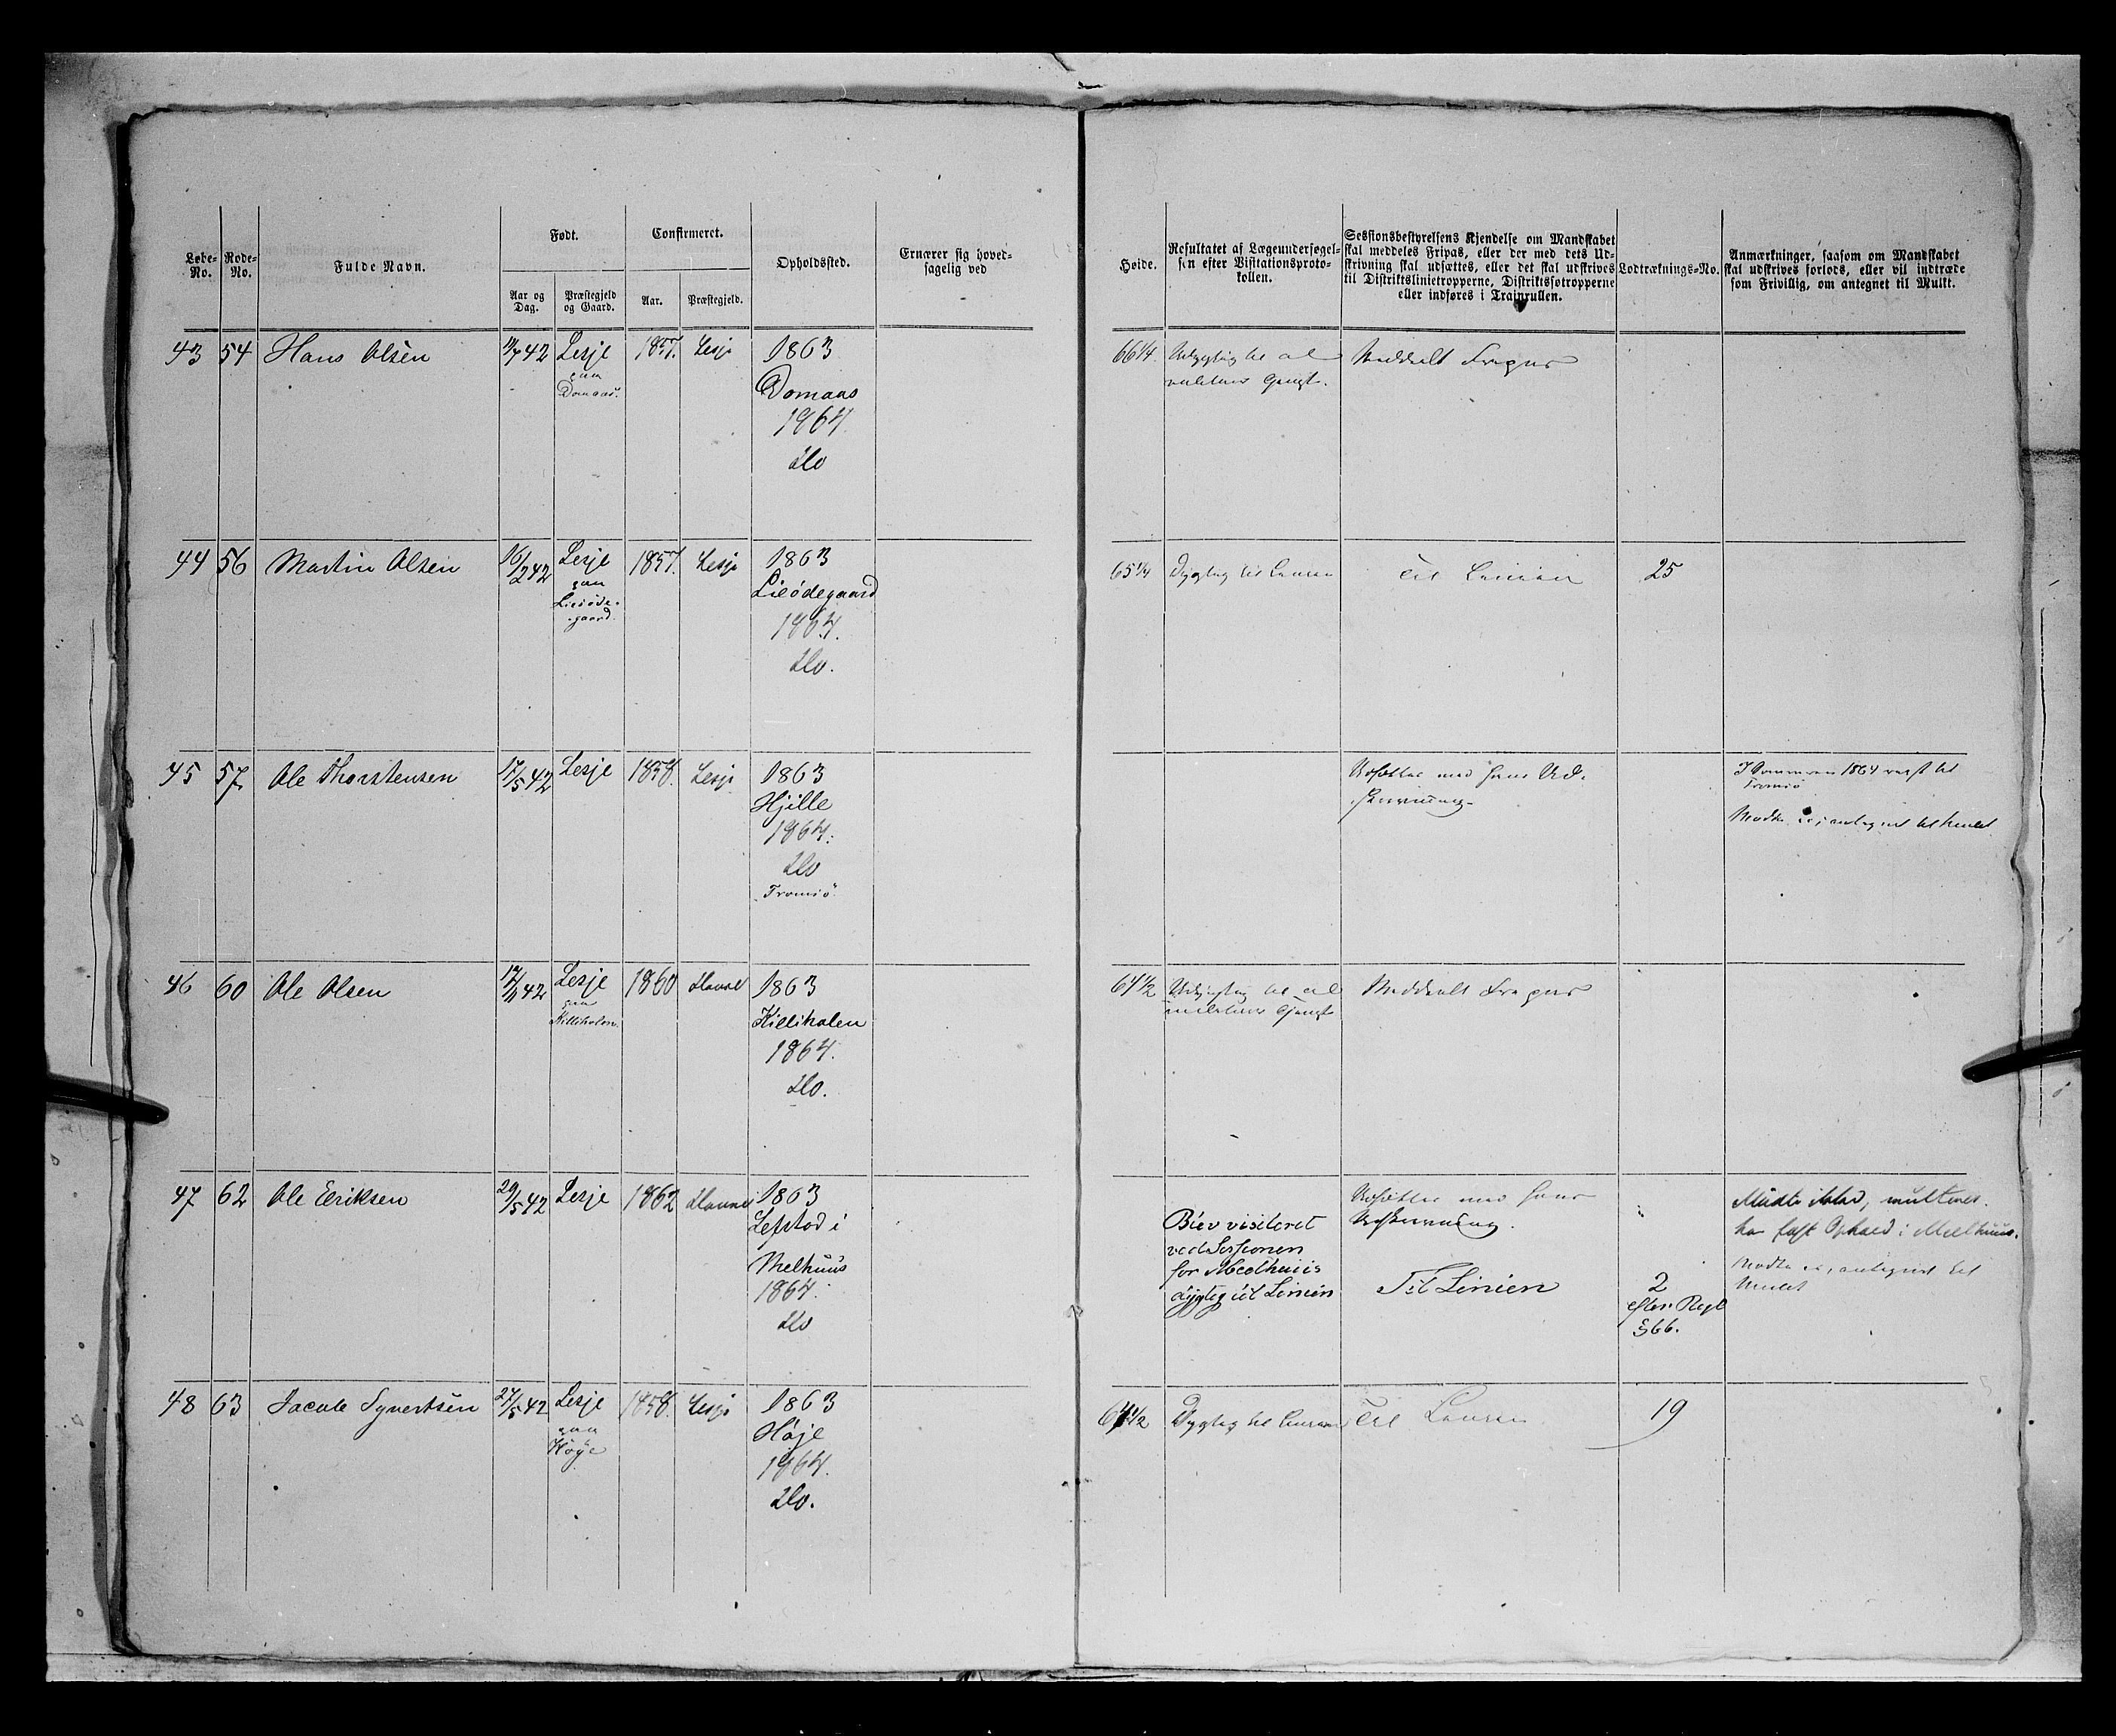 Løbe-No. Rode-No. Fulde Navn. Født. Confirmeret. Opholdssted. Ernærer sig hovedsagelig ved
Aar og Dag. Præstegjeld og Gaard. Aar. Præstegjeld.
Høide.
Resultatet af Lægeundersøgelsen efter Visitationsprotokollen.
Sessionsbestyrelsens Kjendelse om Mandskabet
skal meddeles Fripas, eller der med dets Ud-
skrivning skal udsættes, eller det skal udskrives
til Distriktslinietropperne, Distriktsfotropperne
eller indføres i Trainrullen.
Lodtræknings-No.
Anmærkninger, saasom om Mandskabet
skal udskrives forlods, eller vil indtræde
som Frivillig, om antegnet til Mulkt.
43 54 Hans Olsen 42 Lesje 1857. Lesje 1863
Domaas.
Domaas
1864.
Do
66 1/4. Meddeelt Fripas
44 56 Martin Olsen 16/2 42 Lesje 1857. Lesje 1863
Lieødegaard.
Lieødegaard
1864.
Do.
65 1/4 Dygtig til Linien Til Linien 25
45 57 Ole Thorstensen 17/5 42 Lesje 1858. Lesje 1863
Hjille
1864.
Do
Tromsö
Udsættes med hans Ud-
skrivning
1864 reist til
Tromsö
Mødte ei, antegnet til Mulct
46 60 Ole Olsen 42 Lesje 1860 1863
Killiholen
Killiholen
1864.
Do.
64 1/2 Meddeelt Fripas
47 62 Ole Eriksen 29/5 42 Lesje 1862 1863
Lefstad i
Melhuus
1864.
Do
Blev visiteret
ved Sessionen
for Meelhuus
dygtig til Linien
Udsættes med hans
Udskrivning.
Til Linien
2
efter Regl
§66.
Mødte ikke, multeres.
har fast Ophold i Meelhuus.
Mødte ei, antegnet til
Mulct
48 63 Jacob Syvertsen 27/5 42 Lesje 1858. Lesje 1863
Høye
Høje
1864.
Do.
Dygtig til Linien Til Linien 19